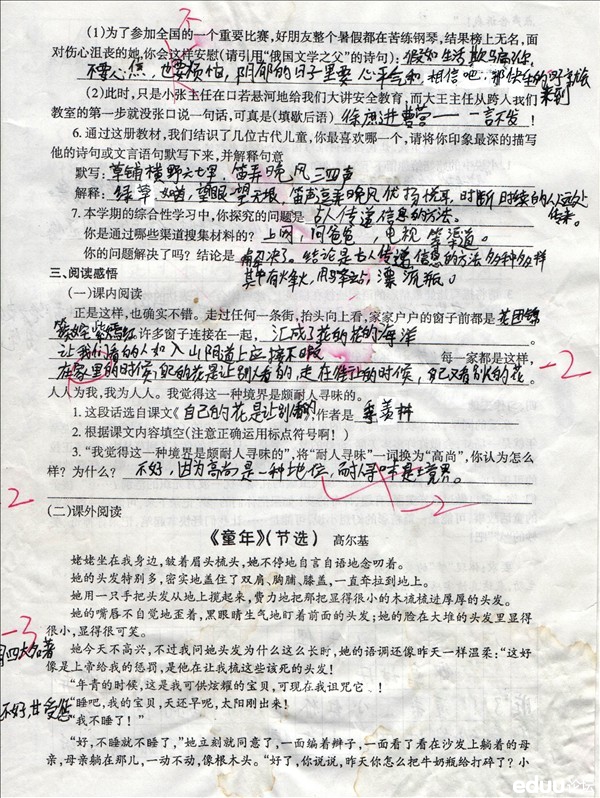 (1)为了参加全国的一个重要比赛,好朋友整个暑假都在苦练钢琴,结果榜上无名,面
对伤心沮丧的她,你会这样安慰(请引用“俄国文学之父”的诗句):假如生活欺骗你,
不要心焦,也要烦恼,阴郁的日子里要心平气和,相信吧,那快乐的日子就来到
(2)此时,只是小张主任在口若悬河地给我们大讲安全教育,而大王主任从跨入我们
教室的第一步就没张口说一句话,可真是(填歇后语)徐庶进曹营——一言不发!
6.通过这册教材,我们结识了几位古代儿童,你最喜欢哪一个,请将你印象最深的描写
他的诗句或文言语句默写下来,并解释句意
默写:草铺横野六七里,笛弄晚风三四声
解释:绿草如茵,望眼望无垠,笛声逗弄晚风优扬悦耳,时断时续的从远处传来。
7.本学期的综合性学习中,你探究的问题是 古人传递信息的方法。
你是通过哪些渠道搜集材料的?上网,问爸爸,电视等渠道。
你的问题解决了吗?结论是 解决了。结论是古人传递信息的方法多种多样
其中有烽火,漂流瓶。
三、阅读感悟
(一)课内阅读
正是这样,也确实不错。走过任何一条街,抬头向上看,家家户户的窗子前都是花团锦
簇、姹紫嫣红。许多窗子连接在一起,汇成了花的花的海洋。
让我们看的人如入山阴道上应接不暇 每一家都是这样,
在家里的时候,自己的花是让别人看的,走在街上的时候,自己又看别人的花。
人人为我,我为人人。我觉得这一种境界是颇耐人寻味的。
-2
1.这段话选自课文《自己的花是让别人看的》,作者是 季羡林
2.根据课文内容填空(注意正确运用标点符号啊!)
3.“我觉得这一种境界是颇耐人寻味的”,将“耐人寻味”一词换为“高尚”,你认为怎么
样?为什么? 不好,因为高尚是一种地位,耐人寻味是境界。
2
-2
(二)课外阅读
《童年》(节选) 高尔基
姥姥坐在我身边,皱着眉头梳头,她不停地自言自语地念叨着。
她的头发特别多,密实地盖住了双肩、胸脯、膝盖,一直牵拉到地上。
她用一只手把头发从地上揽起来,费力地把那把显得很小的木梳梳过厚厚的头发。
她的嘴唇不自觉地歪着,黑眼睛生气地盯着前面的头发;她的脸在大堆的头发里显得
很小,显得很可笑。
-3
她今天不高兴,不过我问她头发为什么这么长时,她的语调还像昨天一样温柔:“这好
像是上帝给我的惩罚,是他在让我梳这些该死的头发!
“年青的时候,这是我可供炫耀的宝贝,可现在我诅咒它、!
“睡吧,我的宝贝,天还早呢,太阳刚出来!
“我不睡了!”
“好,不睡就不睡了,”她立刻就同意了,一面编着辫子,一面看了看在沙发上躺着的母
亲,母亲躺在那儿,一动不动,像根木头。“好了,你说说,昨天你怎么把牛奶瓶给打碎了?小